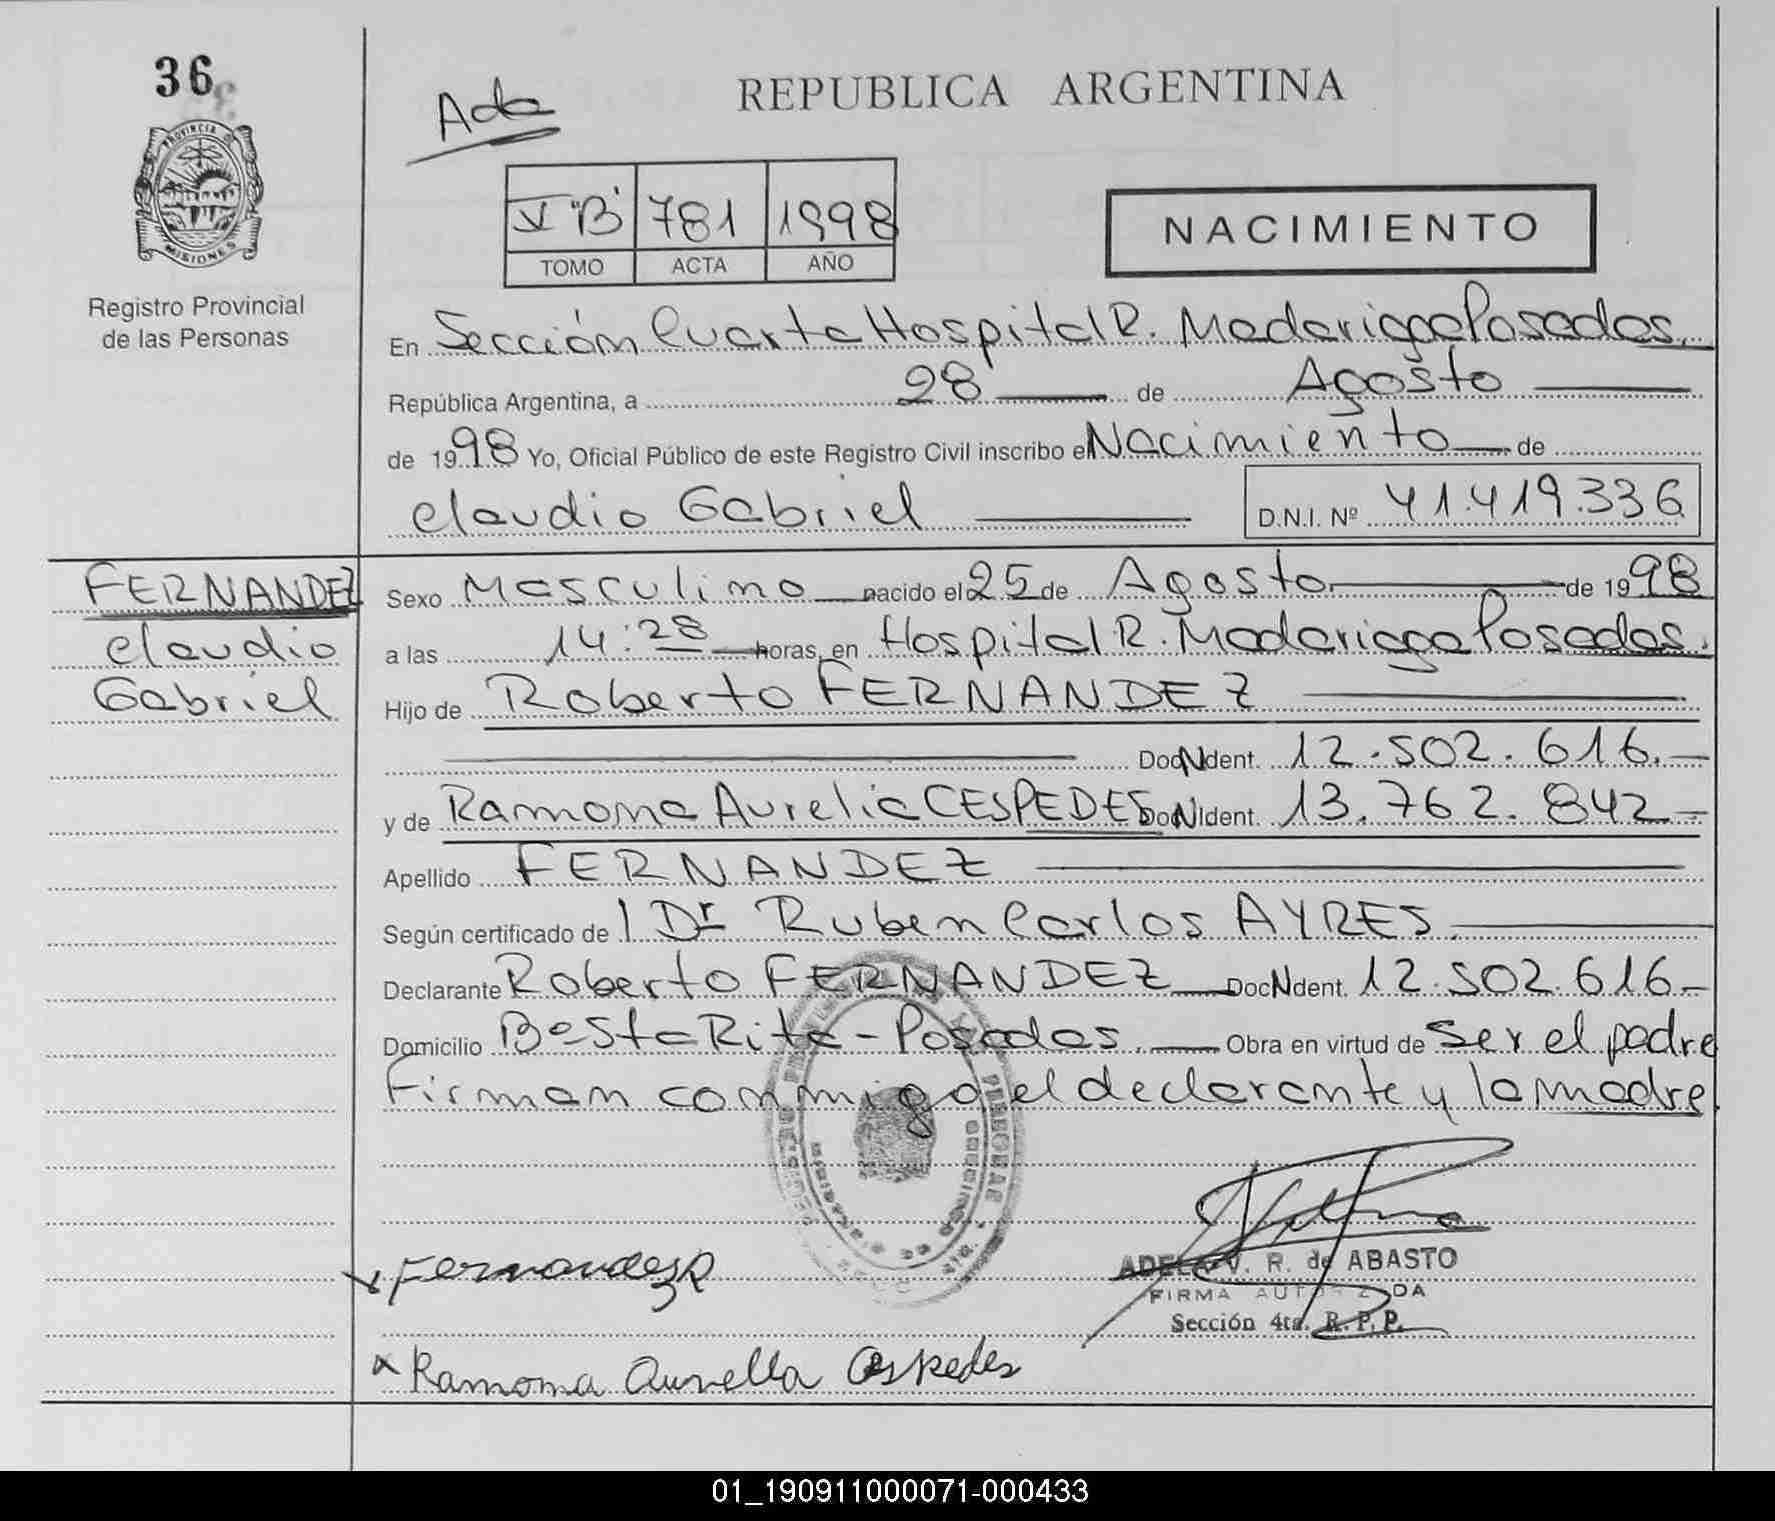 36
Ada
REPUBLICA ARGENTINA
PROVINCIA D
MISIONES
V "B" 781 1998
TOMO ACTA AÑO
NACIMIENTO
Registro Provincial
de las Personas
En Sección Cuarta Hospital R. Madariaga Posadas.
República Argentina, a 28 de Agosto
de 1998 Yo, Oficial Público de este Registro Civil inscribo el Nacimiento de
Claudio Gabriel D.N.I. Nº 41.419.336
FERNANDEZ
Claudio
Gabriel
Sexo Masculino nacido el 25 de Agosto de 1998
a las 14:28 horas, en Hospital R. Madariaga Posadas.
Hijo de Roberto FERNANDEZ
Doc N Ident. 12.502.616.-
y de Ramona Aurelia CESPEDES Doc N Ident. 13.762.842.-
Apellido FERNANDEZ
Según certificado de l Dr Ruben Carlos AYRES.
Declarante Roberto FERNANDEZ Doc N Ident. 12.502.616.-
Domicilio Bº Sta Rita - Posadas. Obra en virtud de ser el padre
Firman conmigo el declarante y la madre.
Fernandez R
ADELA V. R. de ABASTO
FIRMA AUTORIZADA
Sección 4ta. R. P. P.
x Ramona Aurella Cespedes
01_190911000071-000433